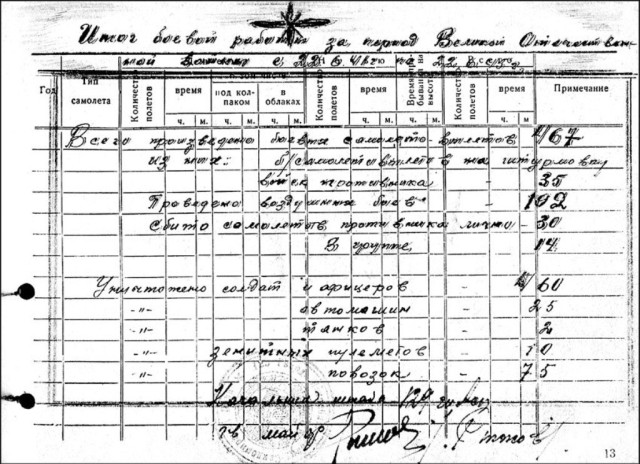 Итог боевой работы за период Великой Отечествен
ной Войны с 22.6.41 по
Год Тип самолета Количество полетов время под колпаком в облаках Количество полетов время Время пребывания на высоте Количество полетов время Примечание
ч. м. ч. м. ч. м. ч. м. ч. м. ч. м.
Всего произведено боевых самолето-вылетов 467
из них: б/самолетовылетов на штурмовку
войск противника – 35
Проведено воздушных боев – 102
Сбито самолетов противника лично – 30
В группе 14
Уничтожено солдат и офицеров 60
-"- автомашин – 25
-"- танков – 2
-"- зенитных пулеметов – 10
-"- повозок – 75
Начальник штаба 129
гв майор
13